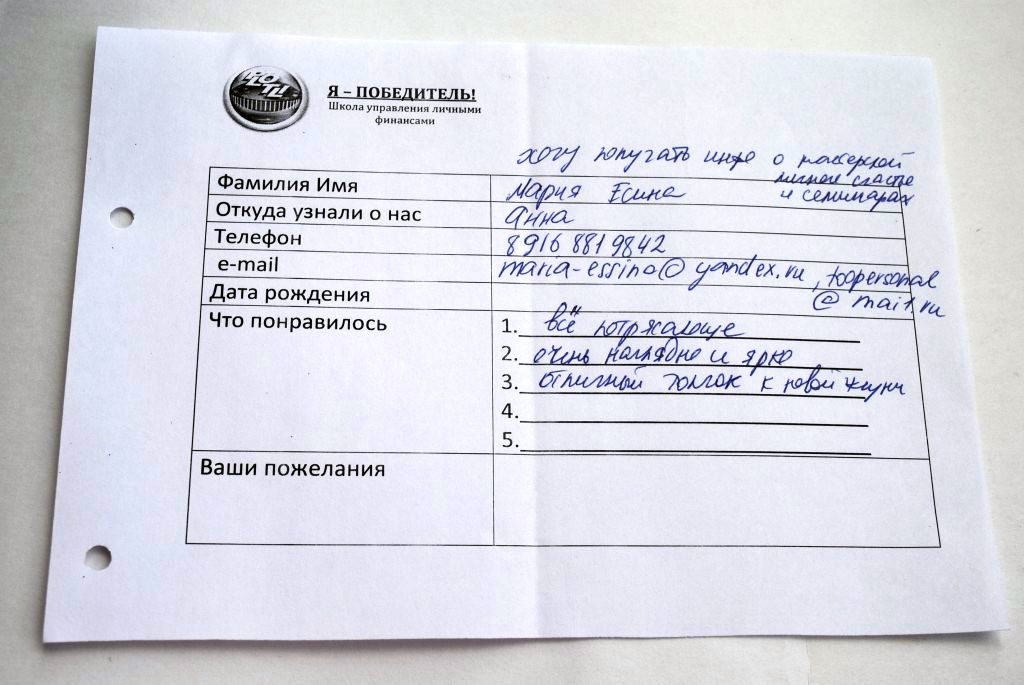 Я – ПОБЕДИТЕЛЬ!
Школа управления личными
финансами
хочу получать инфо о мастерской
личное счастье
и семинарах
Фамилия Имя Мария Есина
Откуда узнали о нас Анна
Телефон 8916 881 9842
e-mail maria-essina@yandex.ru, toopersonal
@mail.ru
Дата рождения
Что понравилось 1. всё потрясающе
2. очень наглядно и ярко
3. отличный толчок к новой жизни
4.
5.
Ваши пожелания